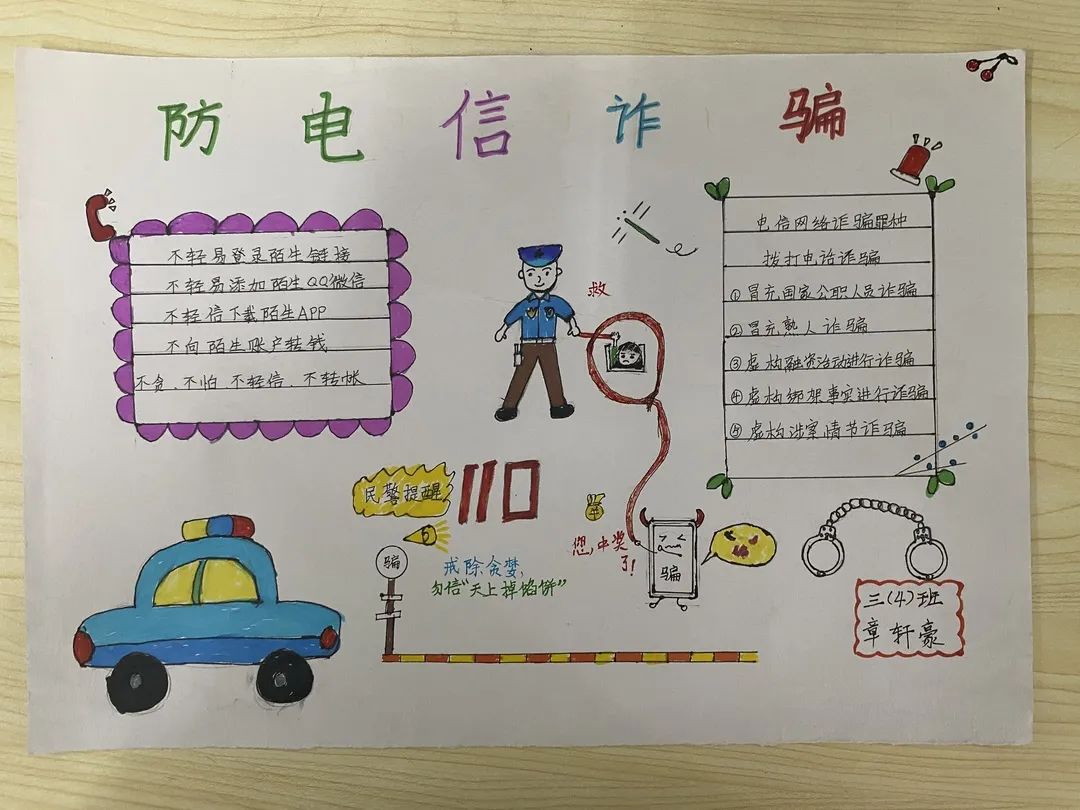 防电信诈骗
不轻易登录陌生链接
不轻易添加陌生QQ微信
不轻信下载陌生APP
不向陌生账户转钱
不贪、不怕、不轻信、不转帐
救
电信网络诈骗罪种
拨打电话诈骗
①冒充国家公职人员诈骗
②冒充熟人诈骗
③虚构融资活动进行诈骗
④虚构绑架事实进行诈骗
⑤虚构涉案情节诈骗
民警提醒
110
骗
戒除贪婪,
勿信“天上掉馅饼”
您,中奖
了!
骗
三(4)班
章轩豪